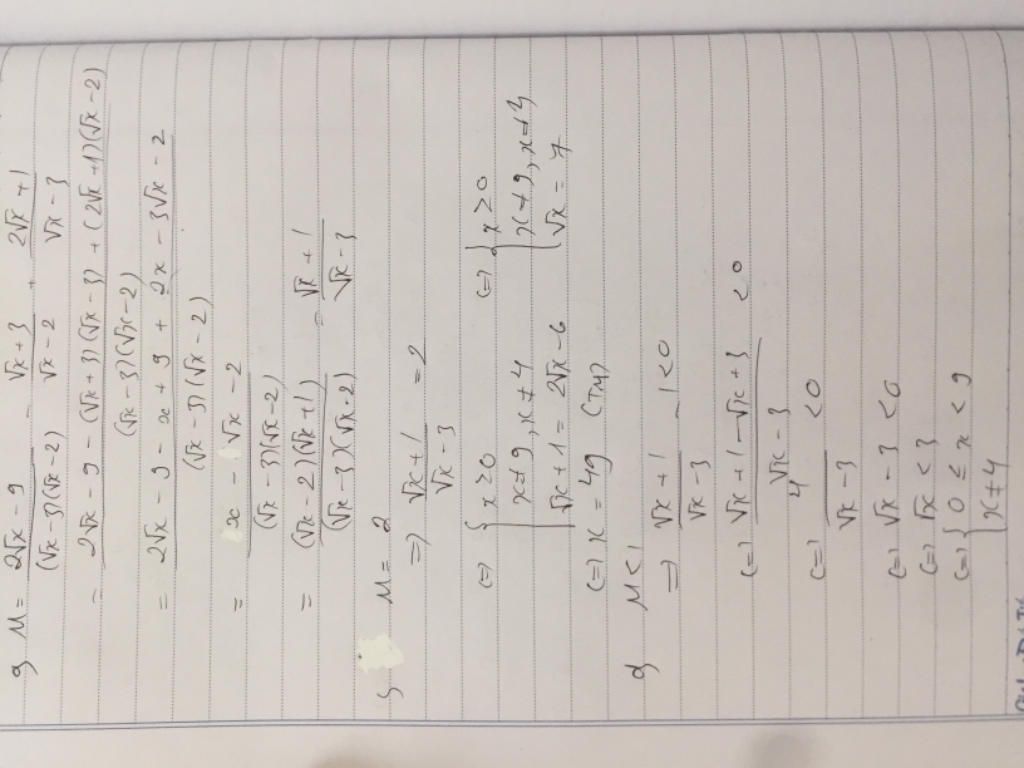 a) M = (2√x - 9)/((√x-3)(√x-2)) - (√x+3)/(√x-2) + (2√x+1)/(√x-3)
= (2√x - 9 - (√x+3)(√x-3) + (2√x+1)(√x-2))/((√x-3)(√x-2))
= (2√x - 9 - x + 9 + 2x - 3√x - 2)/((√x-3)(√x-2))
= (x - √x - 2)/((√x-3)(√x-2))
= ((√x-2)(√x+1))/((√x-3)(√x-2)) = (√x+1)/(√x-3)
M = 2
=> (√x+1)/(√x-3) = 2
(=) { x ≥ 0 (=) { x ≥ 0
x ≠ 9, x ≠ 4 x ≠ 9, x ≠
√x + 1 = 2√x - 6 √x = 7
(=) x = 49 (TM)
M < 1
=> (√x+1)/(√x-3) - 1 < 0
(=) (√x+1-√x+3)/(√x-3) < 0
(=) 4/(√x-3) < 0
(=) √x - 3 < 0
(=) √x < 3
(=) { 0 ≤ x < 9
x ≠ 4